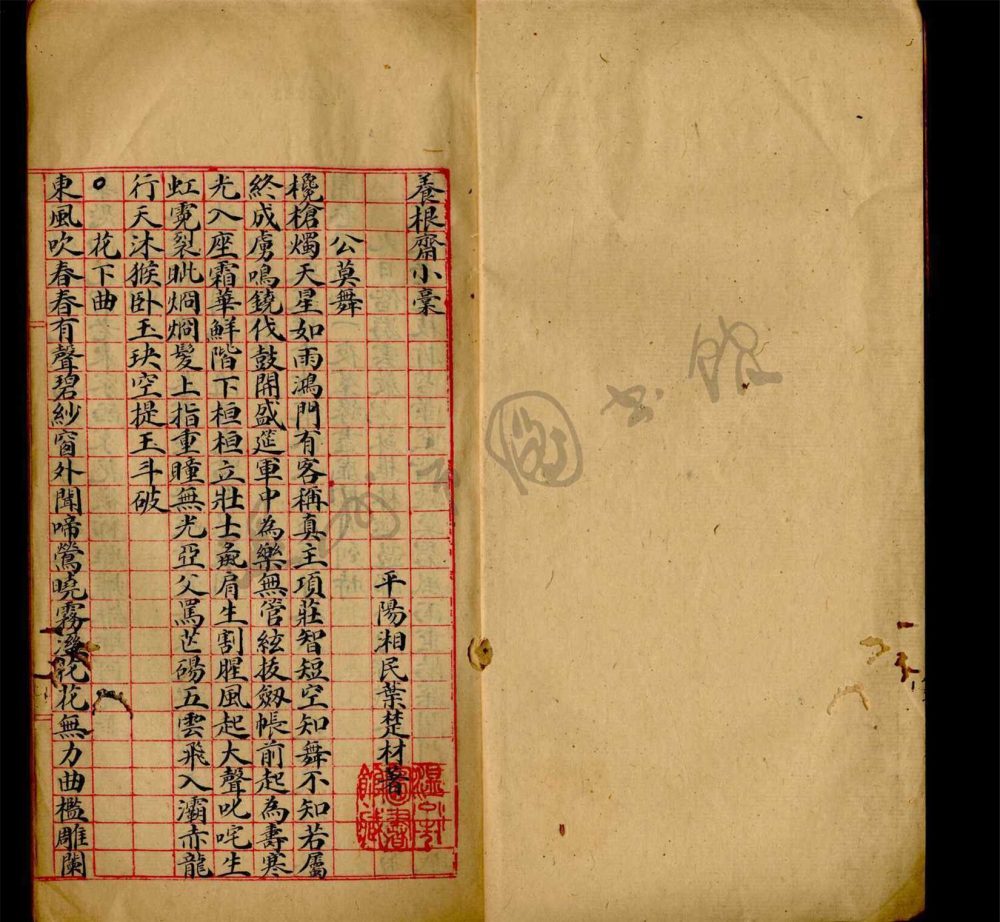 養根齋小稾
平陽湘民葉楚材著
公莫舞
欃槍燭天星如雨鴻門有客稱真主項莊智短空知舞不知若屬
終成虜鳴鐃伐鼓開盛筵軍中為樂無管絃拔劔帳前起為壽寒
光入座霜華鮮階下桓桓立壯士彘肩生割腥風起大聲叱咤生
虹霓裂眦烱烱髮上指重瞳無光亞父罵芒碭五雲飛入灞赤龍
行天沐猴卧玉玦空提玉斗破
花下曲
東風吹春春有聲碧紗窗外聞啼鶯曉霧 花花無力曲檻雕闌
圖書館藏